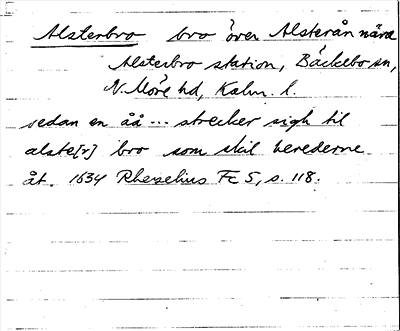 Alsterbro bro över Alsterån nära
Alsterbro station, Bäckebo sn,
N. Möre hd, Kalm. l.
sedan en åå ... strecker sigh til
alste[r] bro som skil herederne
åt. 1634 Rhezelius Fc 5, s. 118.